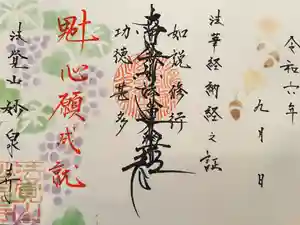 令和六年
九月 日
法華経納経之証
如説修行
南無妙法蓮華経
功徳甚多
心願成就
法登山 妙泉寺